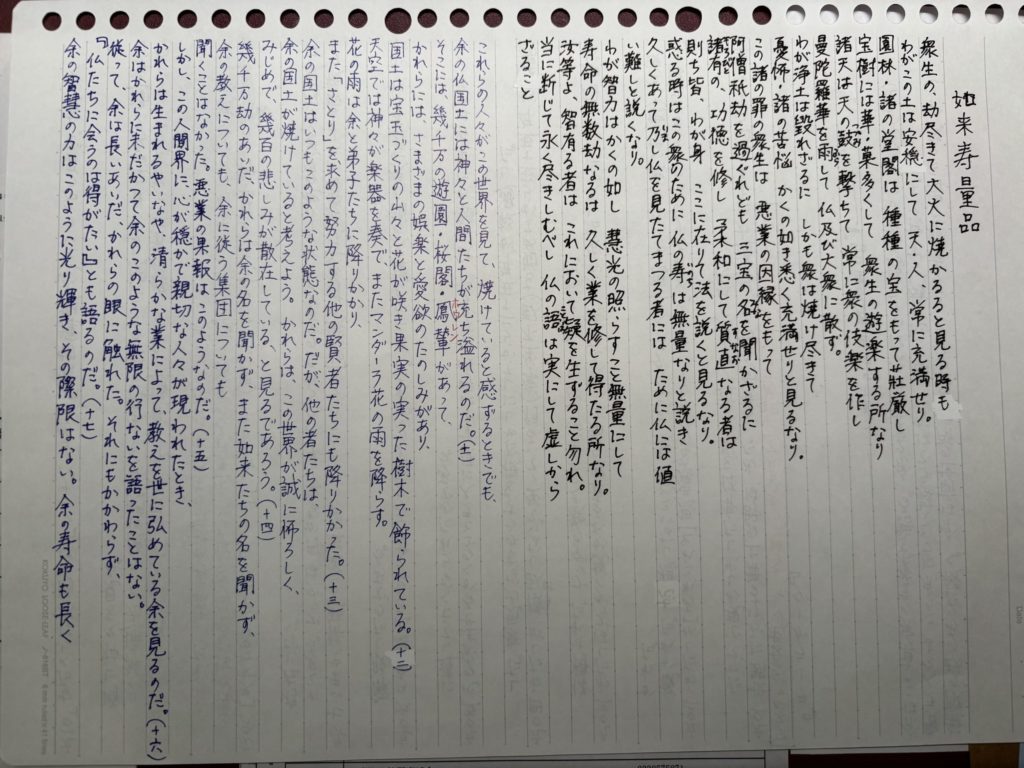 如来寿量品
衆生の、劫尽きて大火に焼かるると見る時も
わがこの土は安穏にして 天・人、常に充満せり。
園林・諸の堂閣は 種種の宝をもって荘厳し
宝樹には華・菓多くして 衆生の遊楽する所なり
諸天は天の鼓を撃ちて 常に衆の伎楽を作し
曼陀羅華を雨して 仏及び大衆に散ず。
わが浄土は毀れざるに しかも衆は焼け尽きて
憂怖・諸の苦悩 かくの如き悉く充満せりと見るなり。
この諸の罪の衆生は 悪業の因縁をもって
阿僧祇劫を過ぐれども 三宝の名を聞かざるに
諸有の、功徳を修し 柔和にして質直なる者は
則ち皆、わが身 ここに在りて法を説くと見るなり。
或る時はこの衆のために 仏の寿は無量なりと説き
久しくあって乃し仏を見たてまつる者には ために仏には値
い難しと説くなり。
わが智力はかくの如し 慧光の照らすこと無量にして
寿命の無数劫なるは 久しく業を修して得たる所なり。
汝等よ、智有る者は これにおいて疑を生ずること勿れ。
当に断じて永く尽きしむべし 仏の語は実にして虚しから
ざること
これらの人々がこの世界を見て、焼けていると感ずるときでも、
余の仏国土には神々と人間たちが充ち溢れるのだ。(十一)
そこには、幾千万の遊園・桜閣・鳳輦があって、
かれらには、さまざまの娯楽と愛欲のたのしみがあり、
国土は宝玉づくりの山々と花が咲き果実の実った樹木で飾られている。(十二)
天空では神々が楽器を奏で、またマンダーラ花の雨を降らす。
花の雨は余と弟子たちに降りかかり、
また「さとり」を求めて努力する他の賢者たちにも降りかかった。(十三)
余の国土はいつもこのような状態なのだ。だが、他の者たちは、
余の国土が焼けていると考えよう。かれらは、この世界が誠に怖ろしく、
みじめで、幾百の悲しみが散在している、と見るであろう。(十四)
幾千万劫のあいだ、かれらは余の名を聞かず、また如来たちの名を聞かず、
余の教えについても、余に従う集団についても
聞くことはなかった。悪業の果報は、このようなのだ。(十五)
しかし、この人間界に、心が穏かで親切な人々が現われたとき、
かれらは生まれるやいなや、清らかな業によって、教えを世に弘めている余を見るのだ。(十六)
余はかれらに未だかつて余のこのような無限の行ないを語ったことはない。
従って、余は長いあいだ、かれらの眼に触れた。それにもかかわらず、
『仏たちに会うのは得がたい』とも語るのだ。(十七)
余の智慧の力はこのように光り輝き、その際限はない。余の寿命も長く